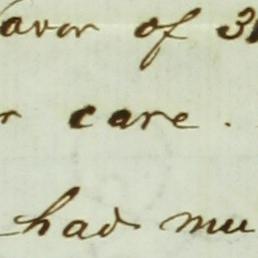 avor of 3
r care.
had mu